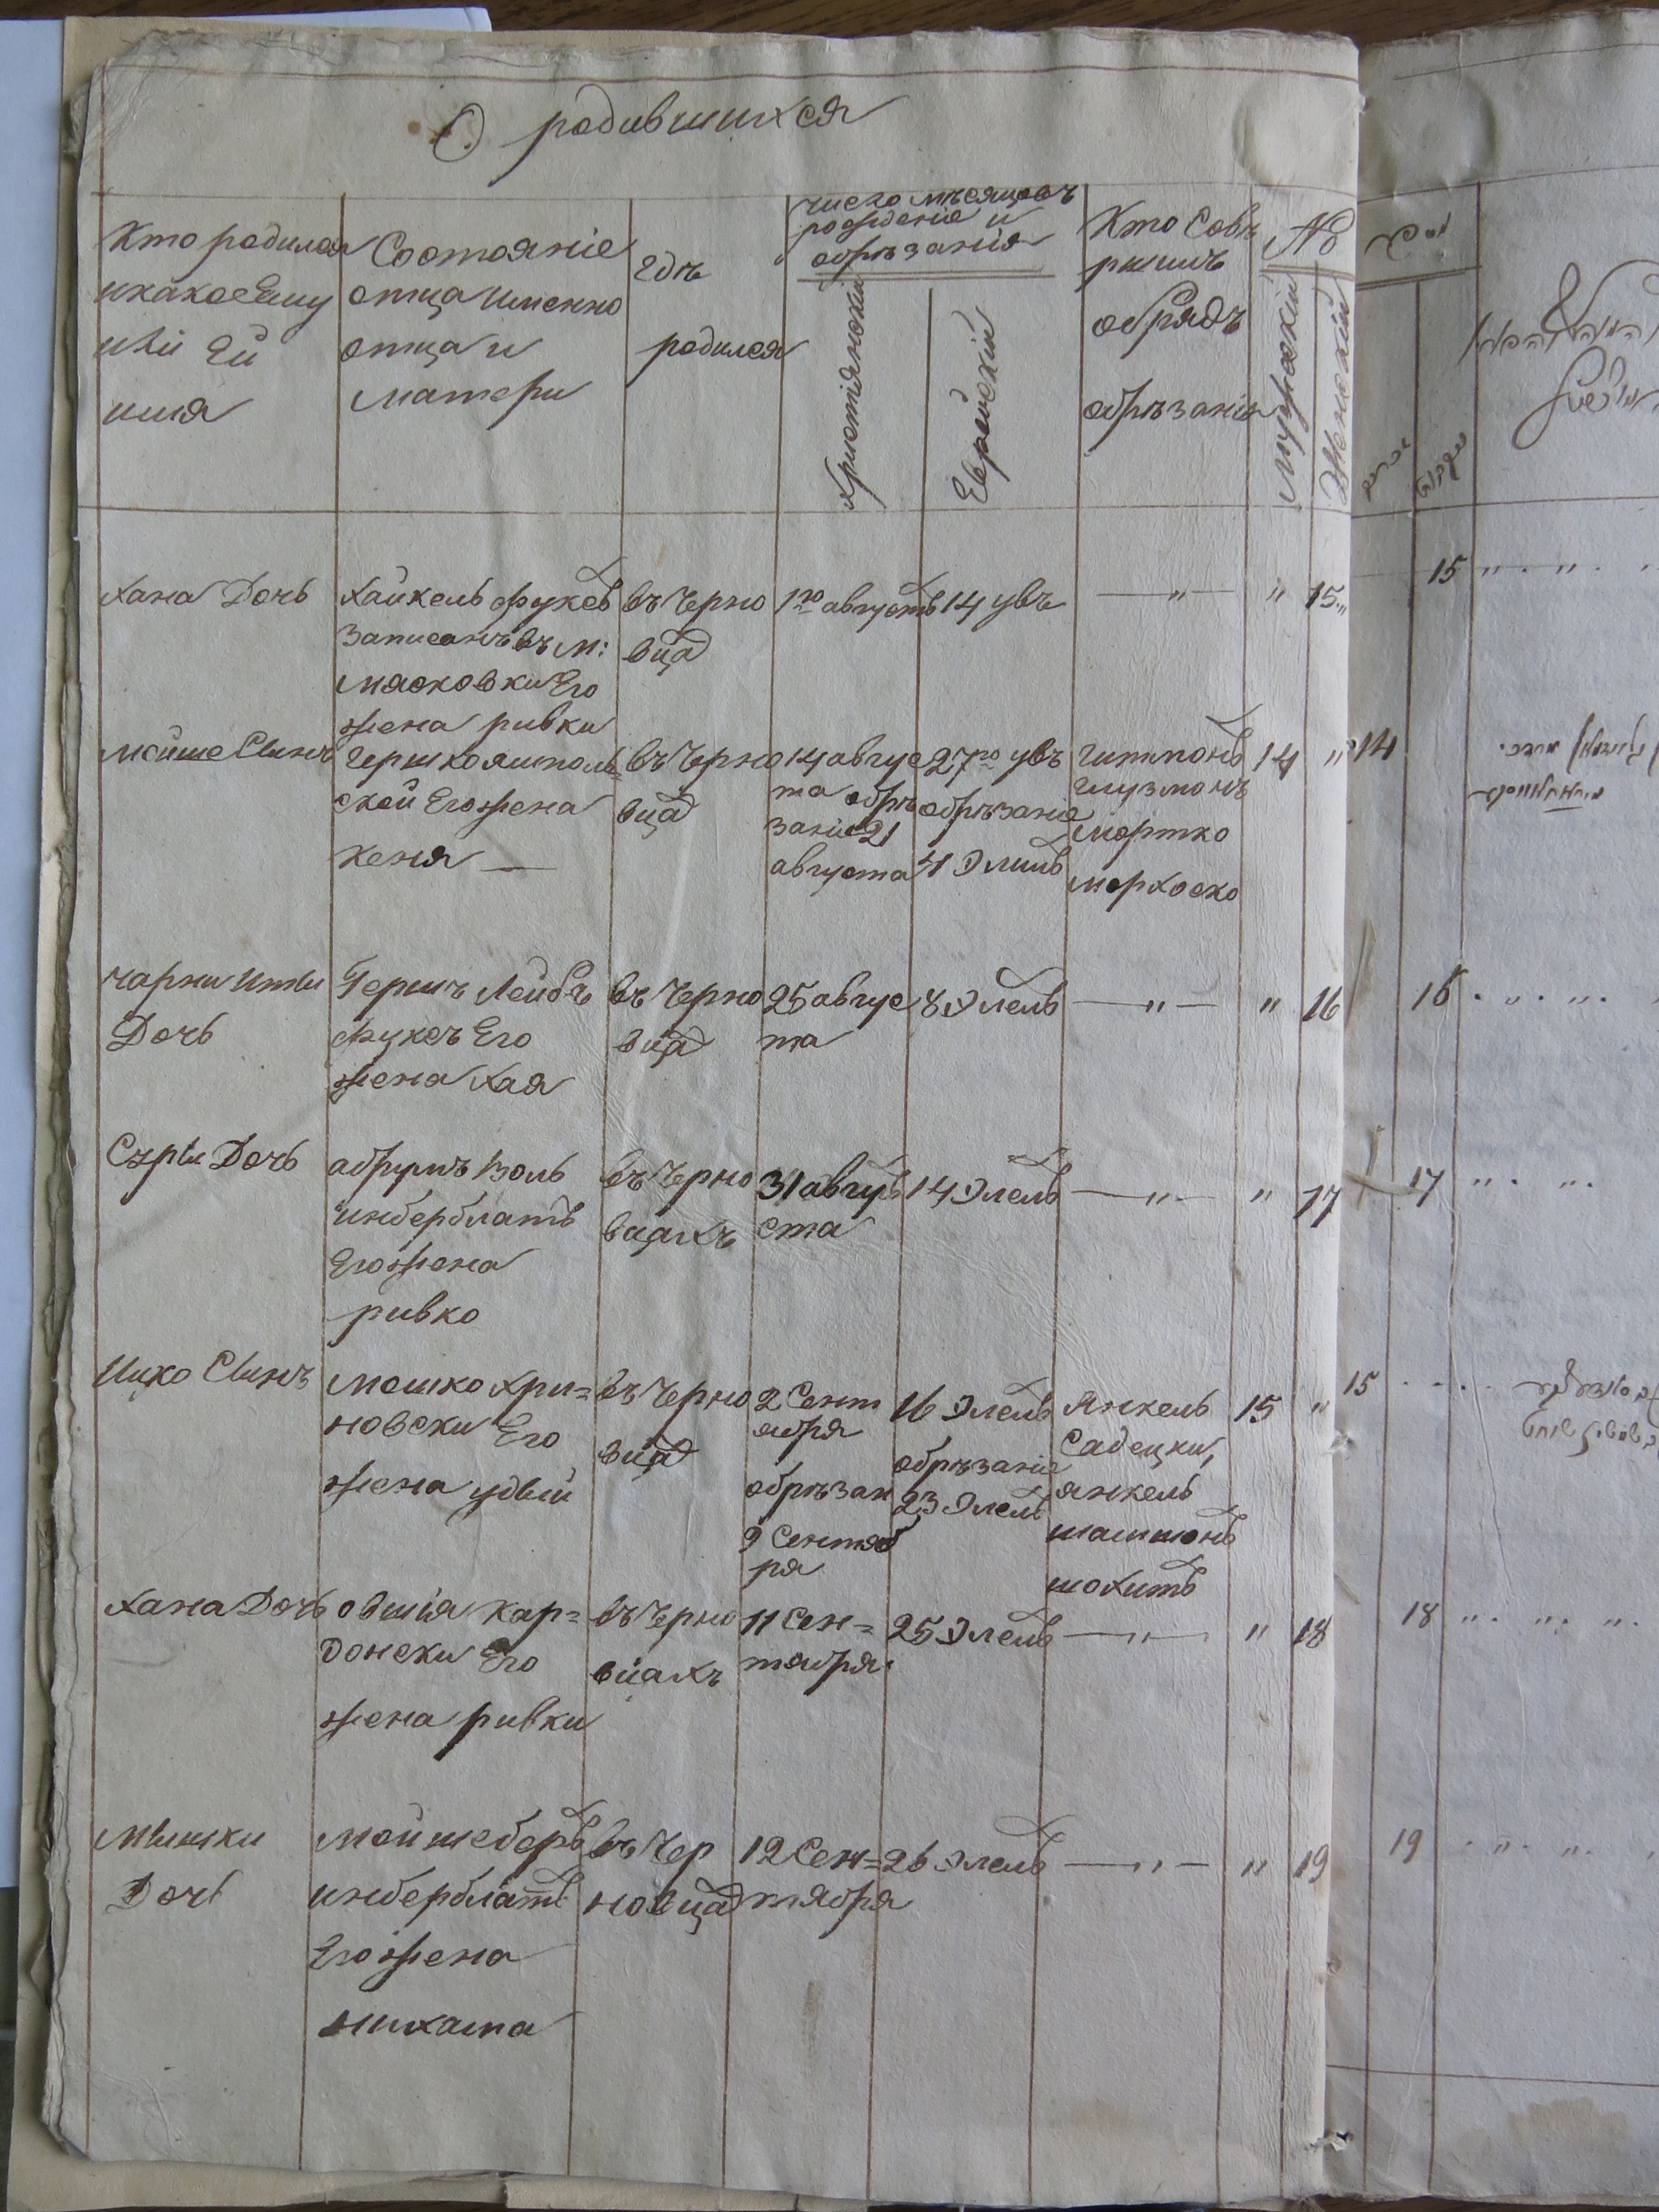 О родившихся
Кто родился
и какое Ему
или Ей
имя
Состояніе
отца именно
отца и
матери
гдѣ
родился
число мѣсяцовъ
рожденіе и
обрѣзанія
Христіянскій
Еврейскій
Кто Совѣ
ршилъ
обрядъ
обрѣзанія
№
Мужескій
Женскій
Хана Дочь
Хайкель фуксъ
Записанъ въ м:
Мясковки Его
жена ривки
въ Черно
вцах
1го августъ
14 увъ
—„—
„
15„
15
Мойше Сынъ
Гершко ямполь=
ской Его жена
Кеня —
въ Черно
вцах
14 авгус
та обрѣ
заніе 21
августа
27го увъ
обрѣзаніе
4 Элиль
Гитмонъ
глузмонъ
мортко
14
„
14
Чарни Итты
Дочь
Гершъ Лейбъ
Фуксъ Его
жена Хая
въ Черно
вцах
25 авгус
та
8 Элель
—„—
„
16
16
Суры Дочь
абрумъ Воль
инберблатъ
Его жена
ривко
въ Черно
вцахъ
31 авгу
ста
14 Элель
—„—
„
17
17
Ицко Сынъ
Мошко Кри=
новски Его
жена удый
въ Черно
вцах
2 Сент
ября
обрѣзан
9 Сентяб
ря
16 Элель
обрѣзаніе
23 Элель
Янкель
Садецки,
янкель
шамшонъ
шохитъ
15
„
15
Хана Дочь
овшія Кар=
донски Его
жена ривки
въ Черно
вцахъ
11 Сен=
тября
25 Элель
—„—
„
18
18
Мышки
Дочь
Мойше берь
инберблатъ
Его жена
въ Чер
новцах
12 Сен=
тября
26 Элель
—„—
„
19
19